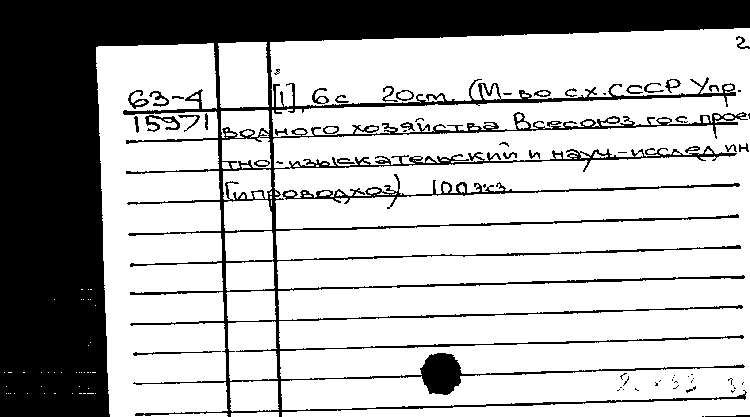 2
63-4 [1], 6 с 20 см. (М-во с.х. СССР Упр.
15971 водного хозяйства Всесоюз. гос. прое
тно-изыскательский и науч.-исслед. ин
Гипроводхоз) 100 экз.